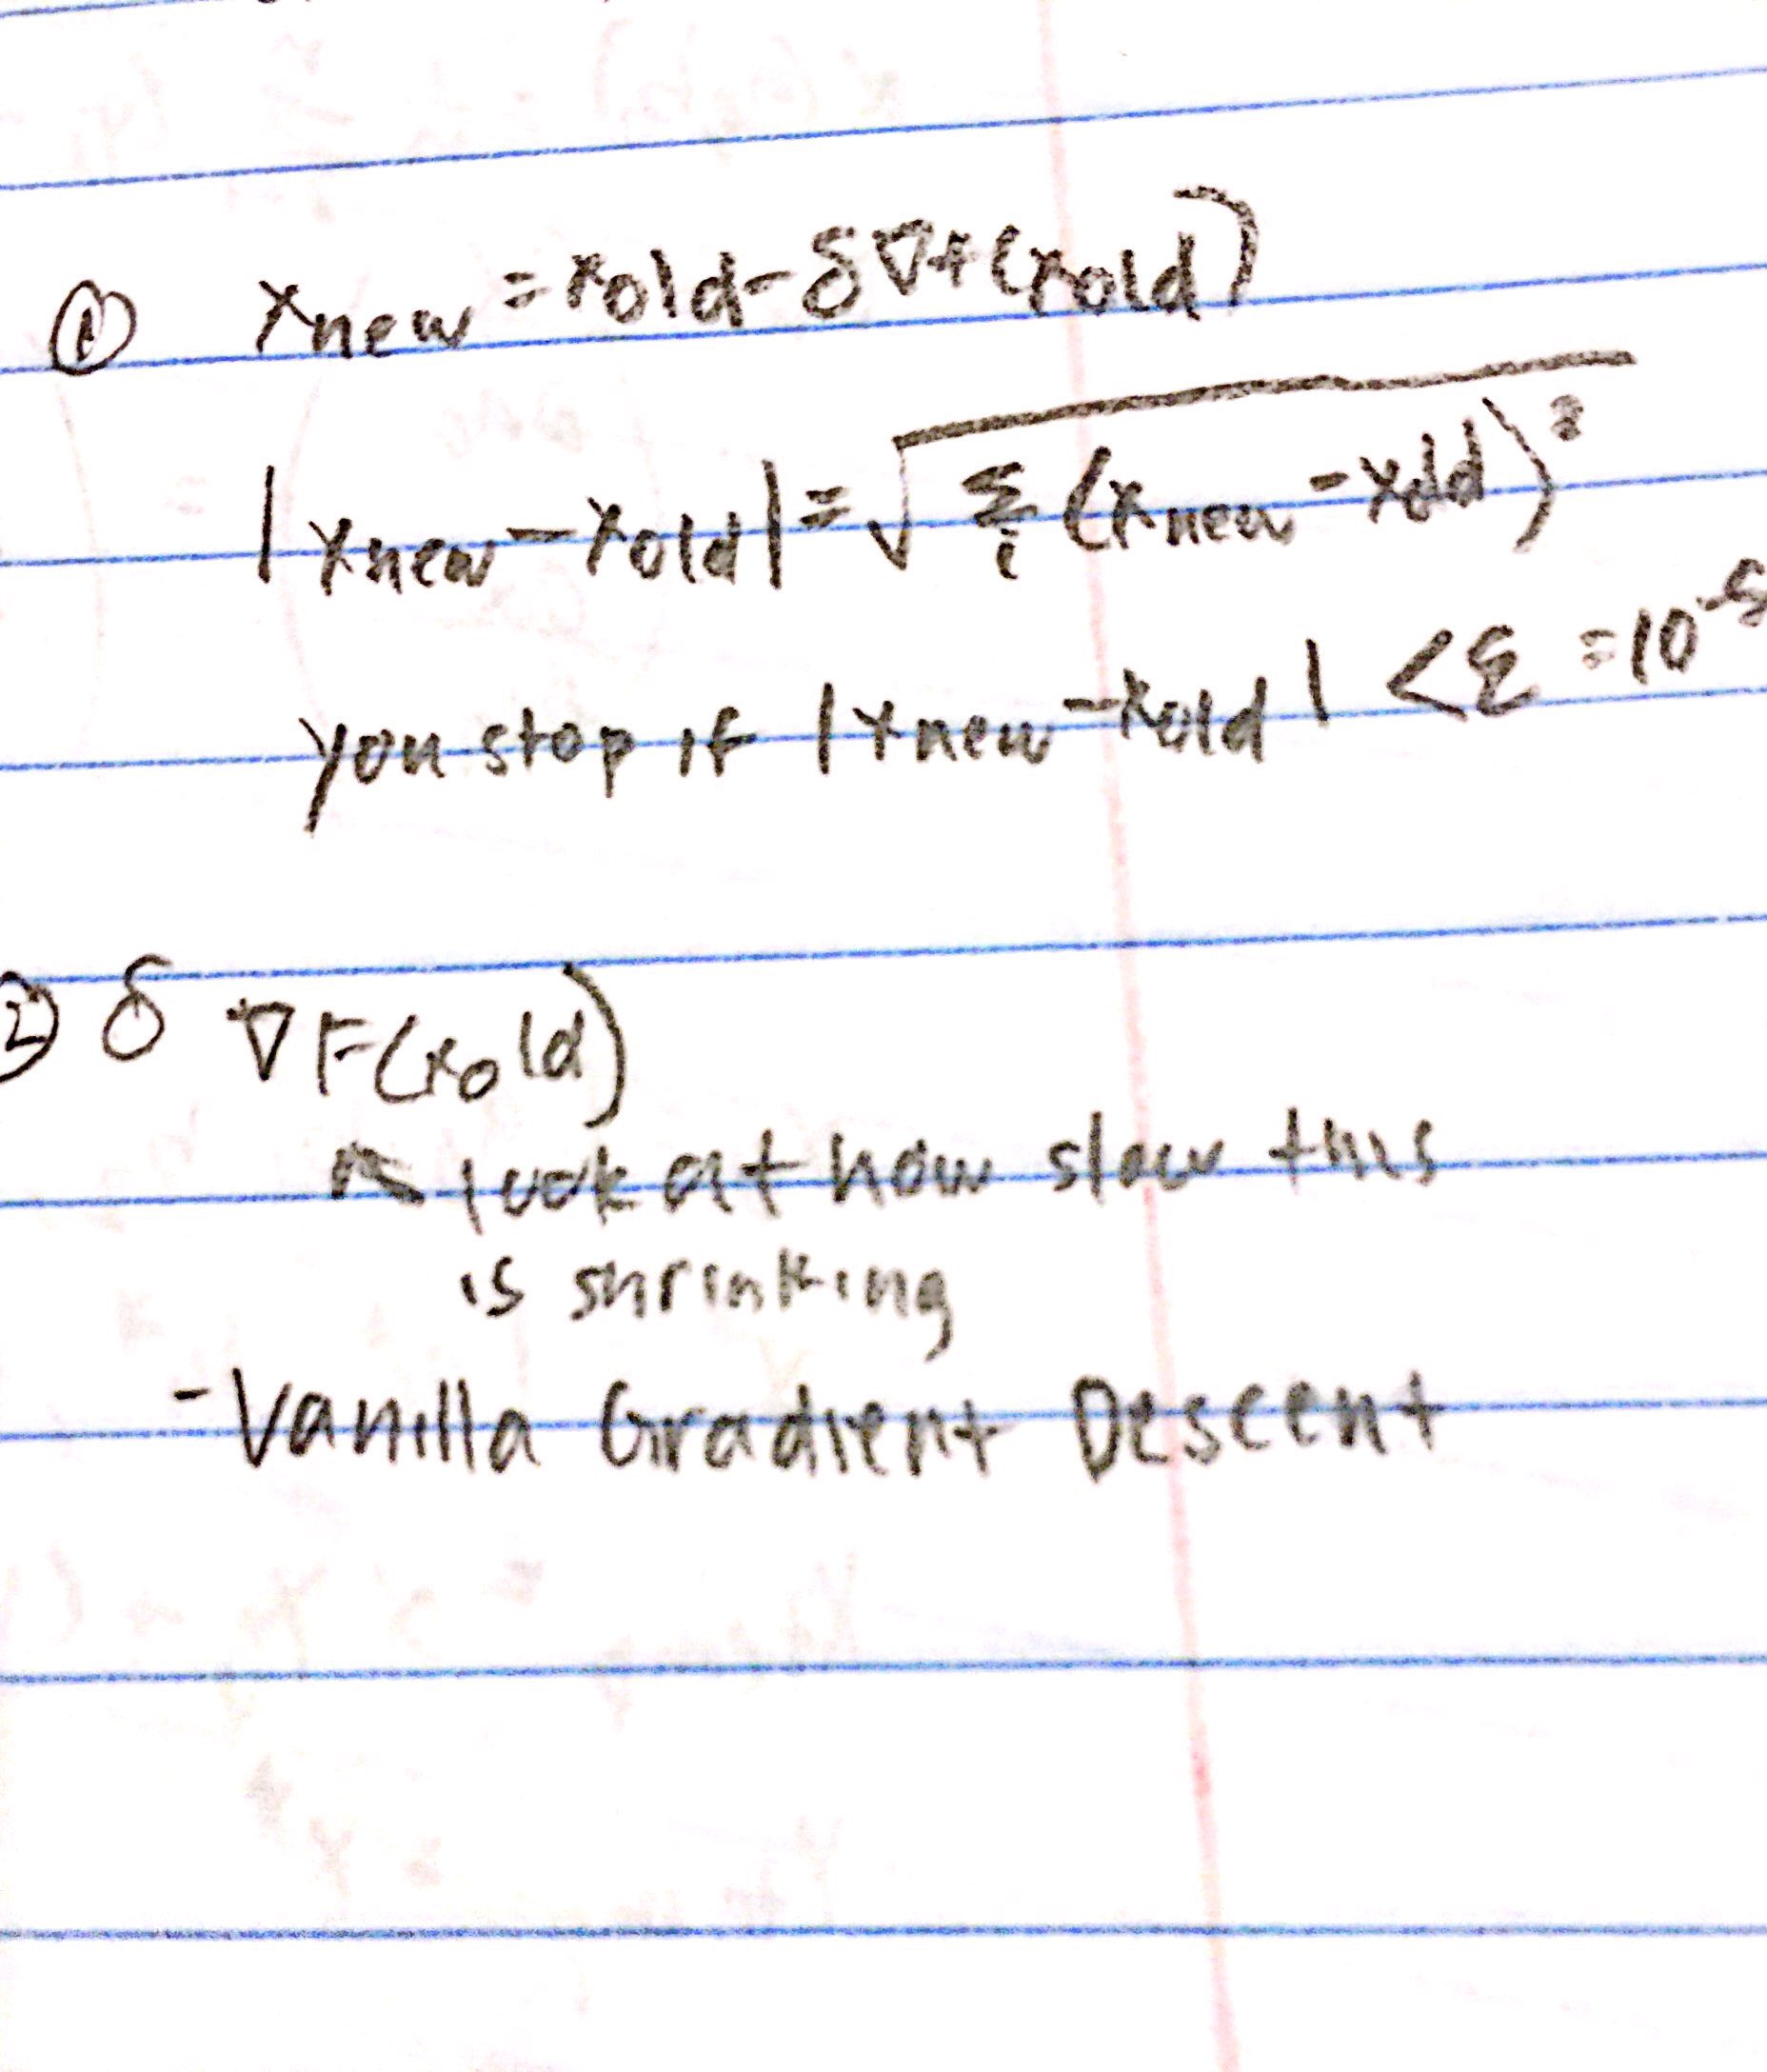 ① xnew = xold - δ∇f(xold)
|xnew - xold| = √Σi (xnew - xold)²
you stop if |xnew - xold| < ε = 10^-5
② δ ∇F(xold)
↖ look at how slow this
is shrinking
- Vanilla Gradient Descent